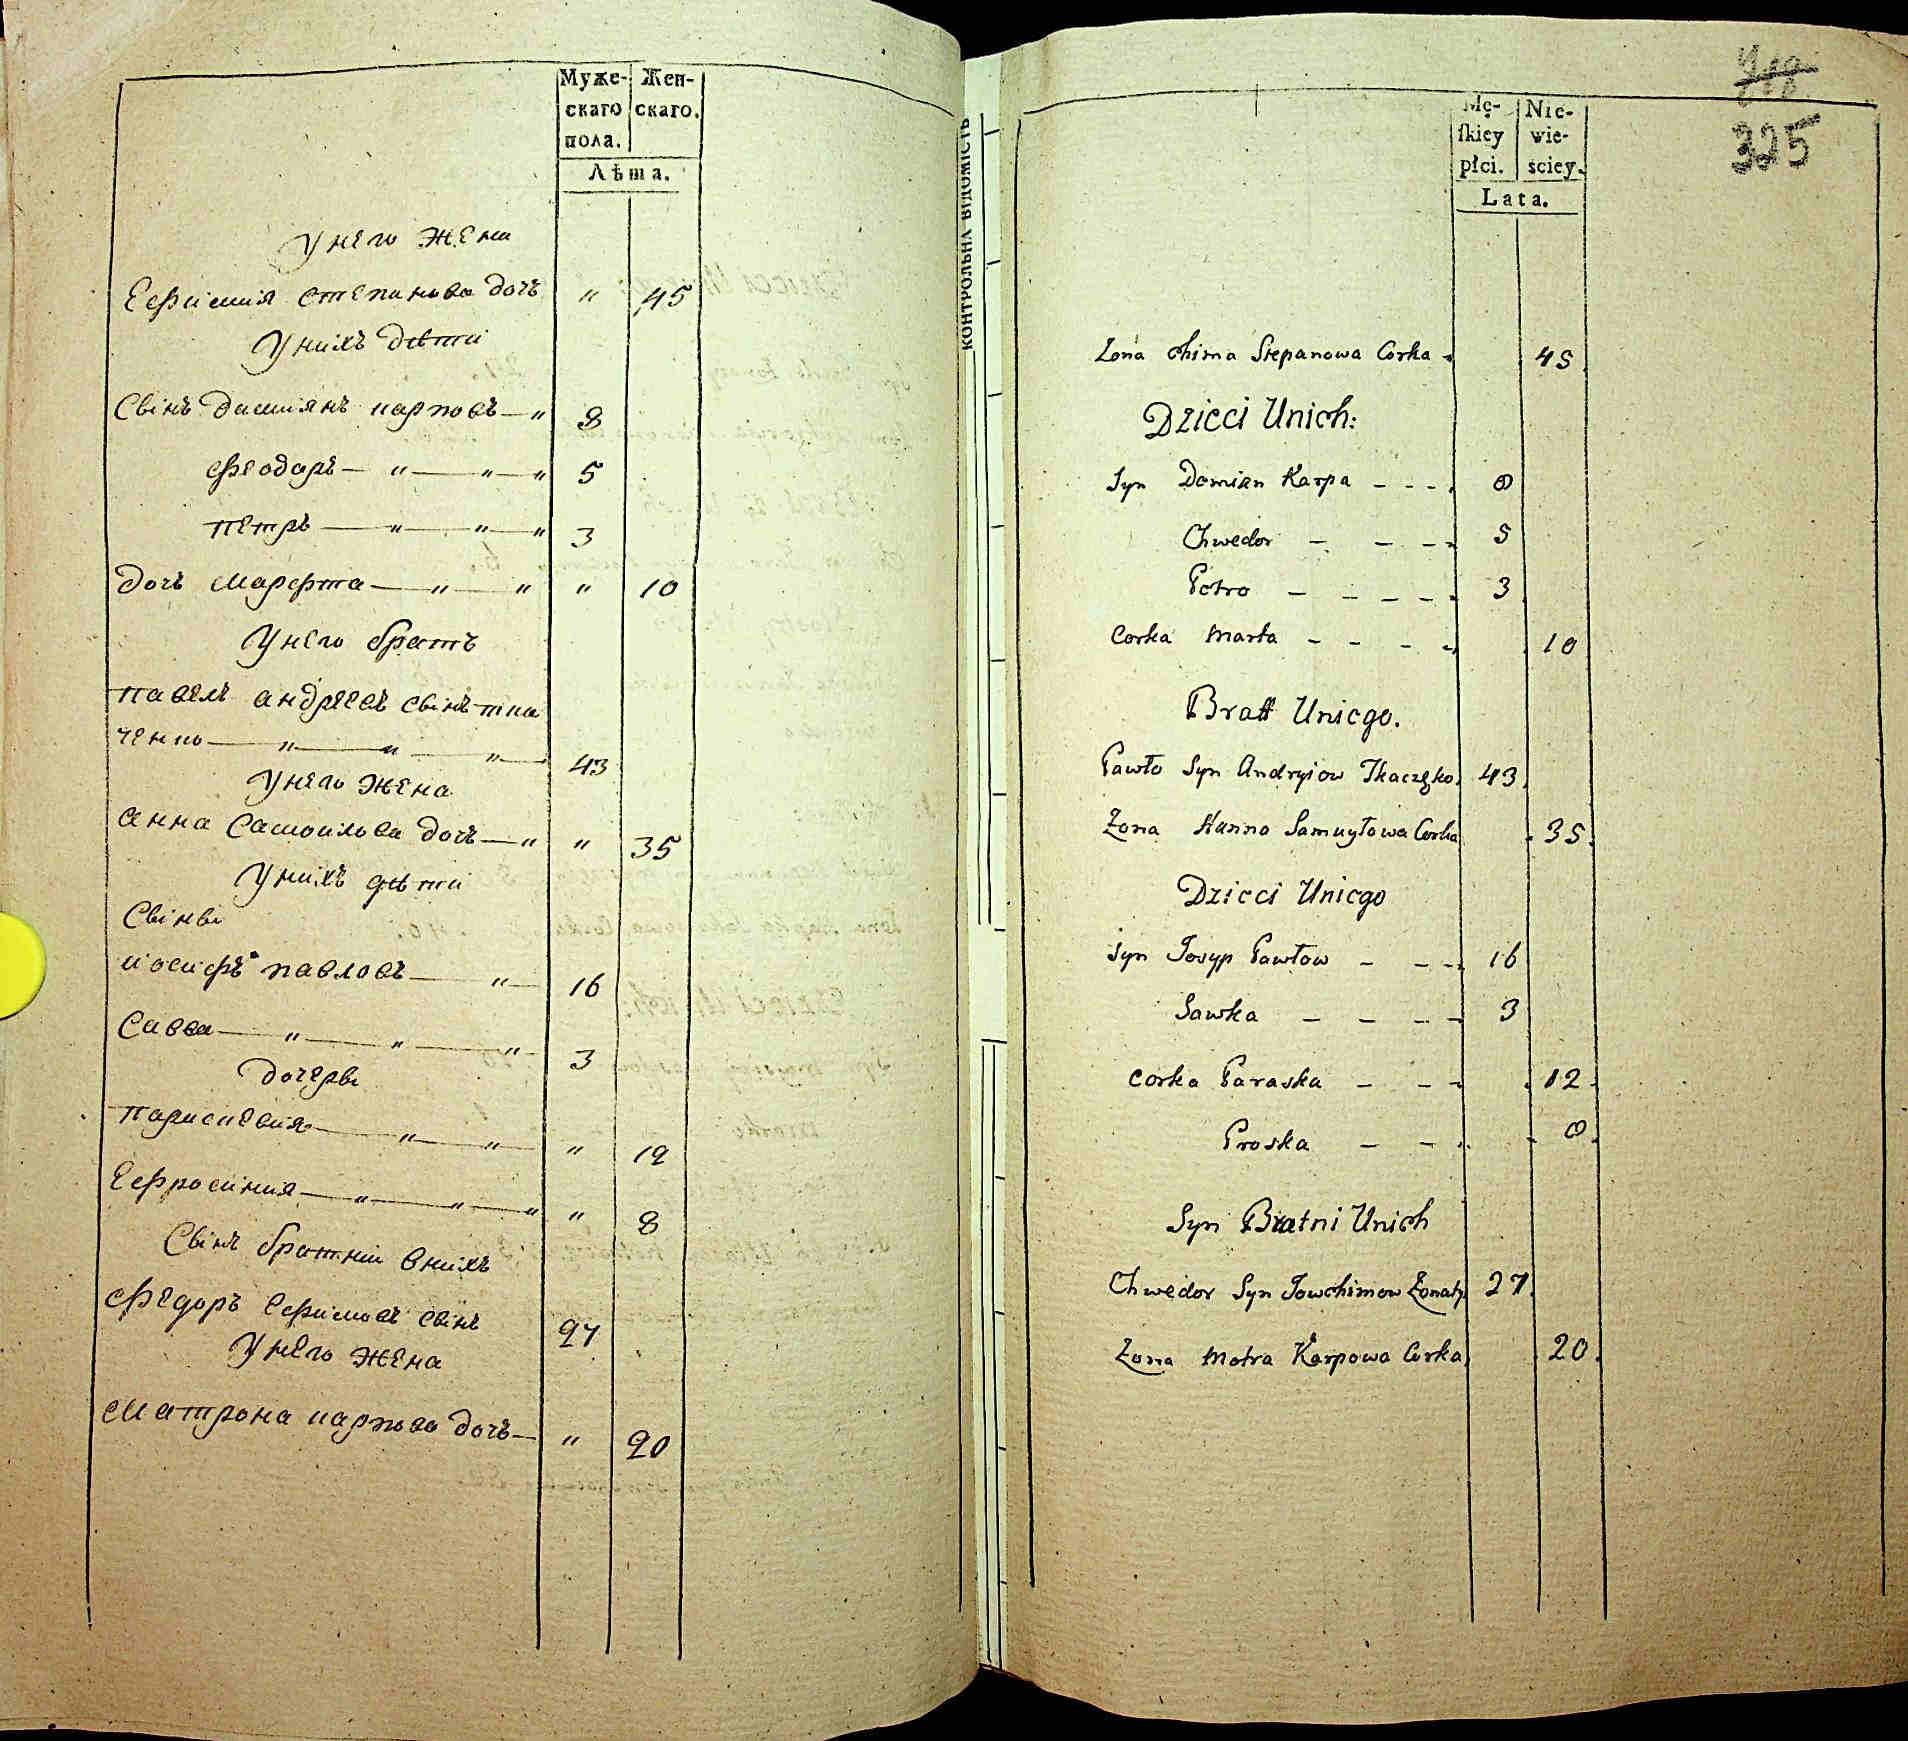 Муже- Жен-
скаго скаго.
пола.
Лѣта.
У него жена
Ефимия степанова дочь " 45
У нихъ дѣти
Свінъ Дамиянъ карповъ — " 8
Феодоръ — " — " — " 5
петръ — " — " — " 3
дочь Марфта — " — " " 10
У него братъ
павелъ андреевъ свінъ тка
ченко — " — " — " — 43
У него жена
анна Самоилова дочь — " " 35
У нихъ дѣти
Свінві
иосифъ павловъ — " — 16
Савва — " — " — " — 3
дочерві
парасковия — " — " — " 12
Ефросиния — " — " — " " 8
Свінъ братній внихъ
Федоръ Ефимовъ свінъ 27
У него жена
Матрона карпова дочь — " 20
КОНТРОЛЬНА ВІДОМІСТЬ
418
325
Mę- Nie-
ſkiey wie-
płci. sciey.
Lata.
Zona Chima Stepanowa Corka - 45
Dzieci Unich:
Syn Domian Karpa - - - . 8
Chwedor - - - - 5
Petro - - - - - 3
Corka Marta - - - - 10
Bratt Uniego.
Pawło Syn Andryiow Tkaczęko. 43
Zona Hanna Samuyłowa Corka 35
Dzieci Uniego
Syn Josyp Pawłow - - - 16
Sawka - - - - 3
Corka Paraska - - - 12
Proska - - . 8
Syn Bratni Unich
Chwedor Syn Jowchimow Żonaty 27
Zona Motra Karpowa Corka 20